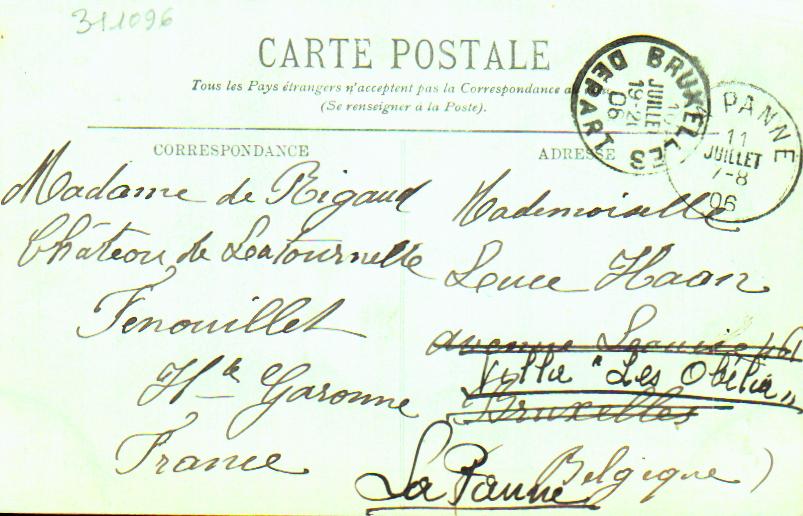 311096
CARTE POSTALE
Tous les Pays étrangers n'acceptent pas la Correspondance a
(Se renseigner à la Poste).
BRUXELLES
DEPART
JUILLET
19-20
06
PANNE
11
JUILLET
7-8
06
CORRESPONDANCE
Madame de Rigaud
Château de Latournelle
Fenouillet
Hte Garonne
France
ADRESSE
Mademoiselle
Luce Haan
avenue Louise 461
Villa "Les Obélia"
Bruxelles
Belgique)
La Panne